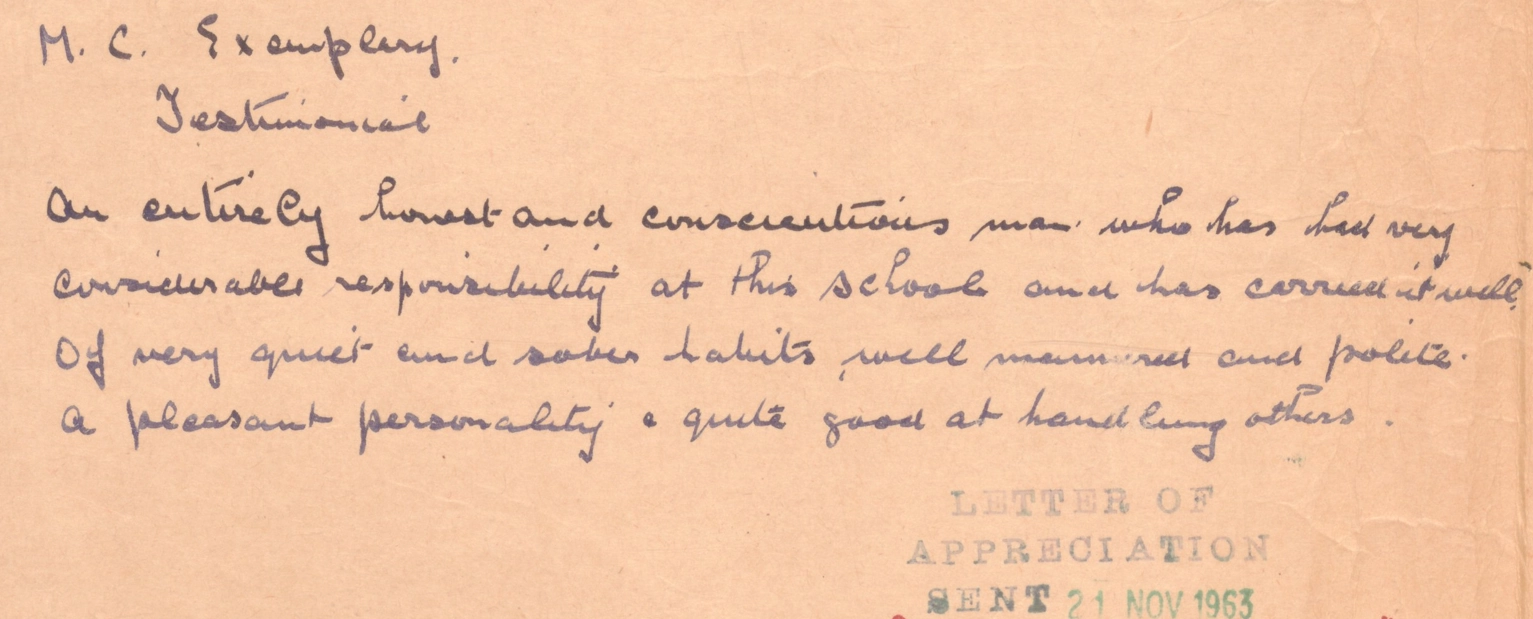 M. C. Exemplary.
Testimonial
An entirely honest and conscientious man who has had very
considerable responsibility at this school and has carried it well.
Of very quiet and sober habits, well mannered and polite.
A pleasant personality & quite good at handling others.
LETTER OF
APPRECIATION
SENT 21 NOV 1963